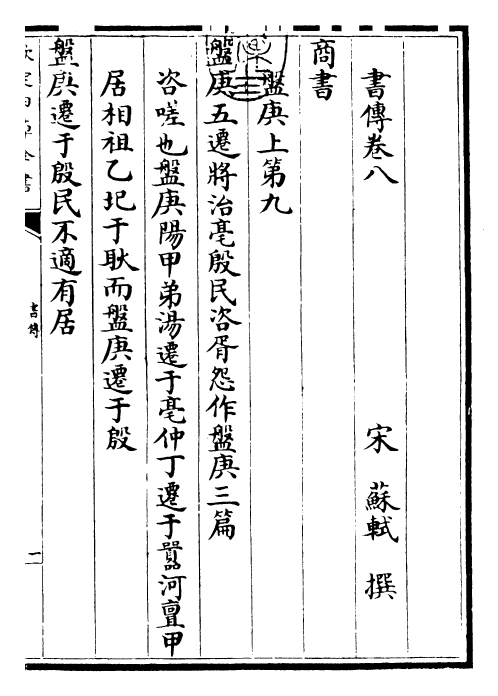 書傳卷八
宋 蘇軾 撰
商書
盤庚上第九
盤庚五遷將治亳殷民咨胥怨作盤庚三篇
咨嗟也盤庚陽甲弟湯遷于亳仲丁遷于囂河亶甲
居相祖乙圮于耿而盤庚遷于殷
盤庚遷于殷民不適有居
欽定四庫全書
書傳